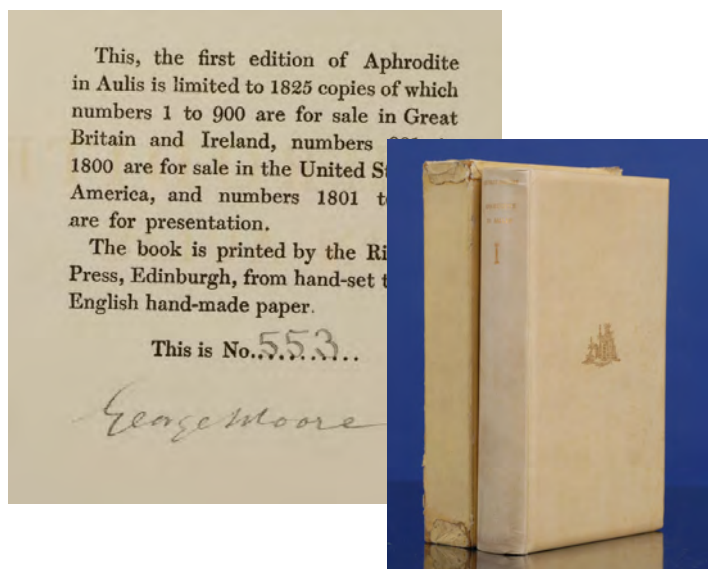 This, the first edition of Aphrodite
in Aulis is limited to 1825 copies of which
numbers 1 to 900 are for sale in Great
Britain and Ireland, numbers
1800 are for sale in the United
America, and numbers 1801
are for presentation.
The book is printed by the
Press, Edinburgh, from hand-set
English hand-made paper.
This is No..553..........
George Moore